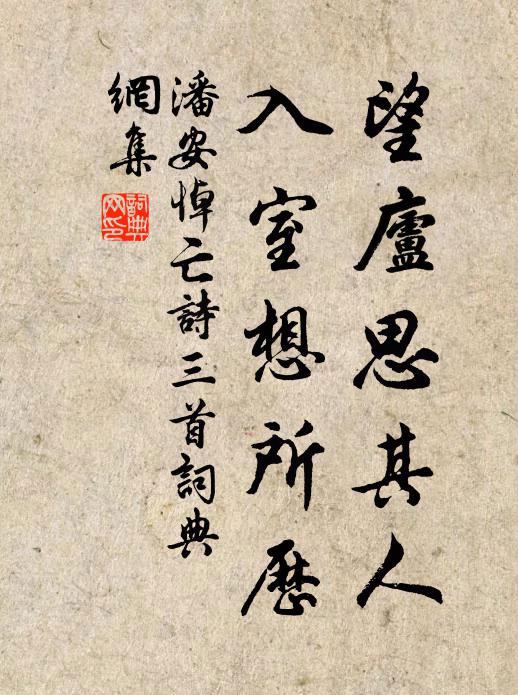 望廬思其人
入室想所歷
潘安悼亡詩三首詞典
網集
詞典
网印